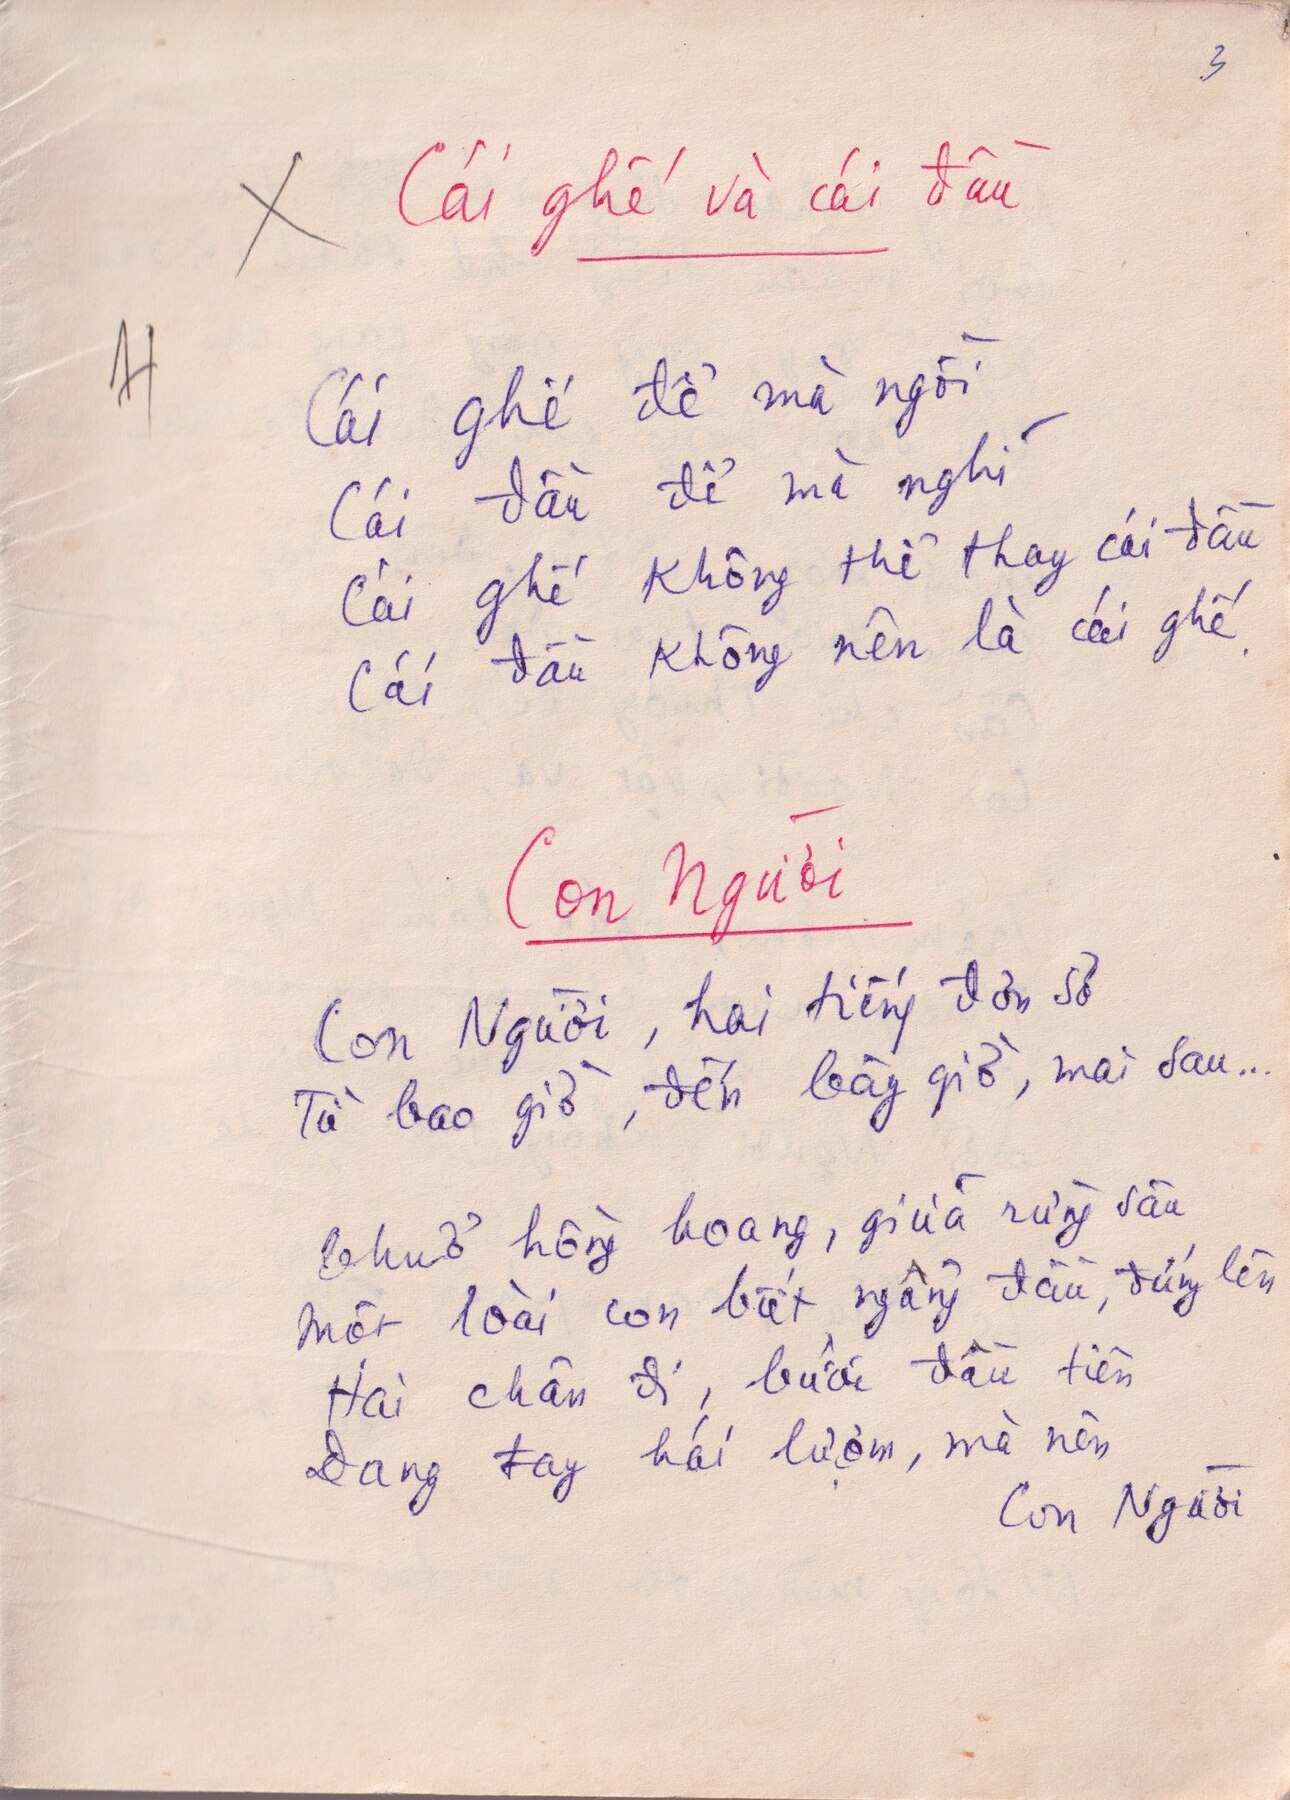 3
Cái ghế và cái đầu
Cái ghế để mà ngồi
Cái đầu để mà nghĩ
Cái ghế không thể thay cái đầu
Cái đầu không nên là cái ghế.
Con Người
Con Người, hai tiếng đơn sơ
Từ bao giờ, đến bây giờ, mai sau...
Thuở hồng hoang, giữa rừng sâu
Một loài con biết ngẩng đầu, đứng lên
Hai chân đi, buổi đầu tiên
Dang tay hái lượm, mà nên
Con Người